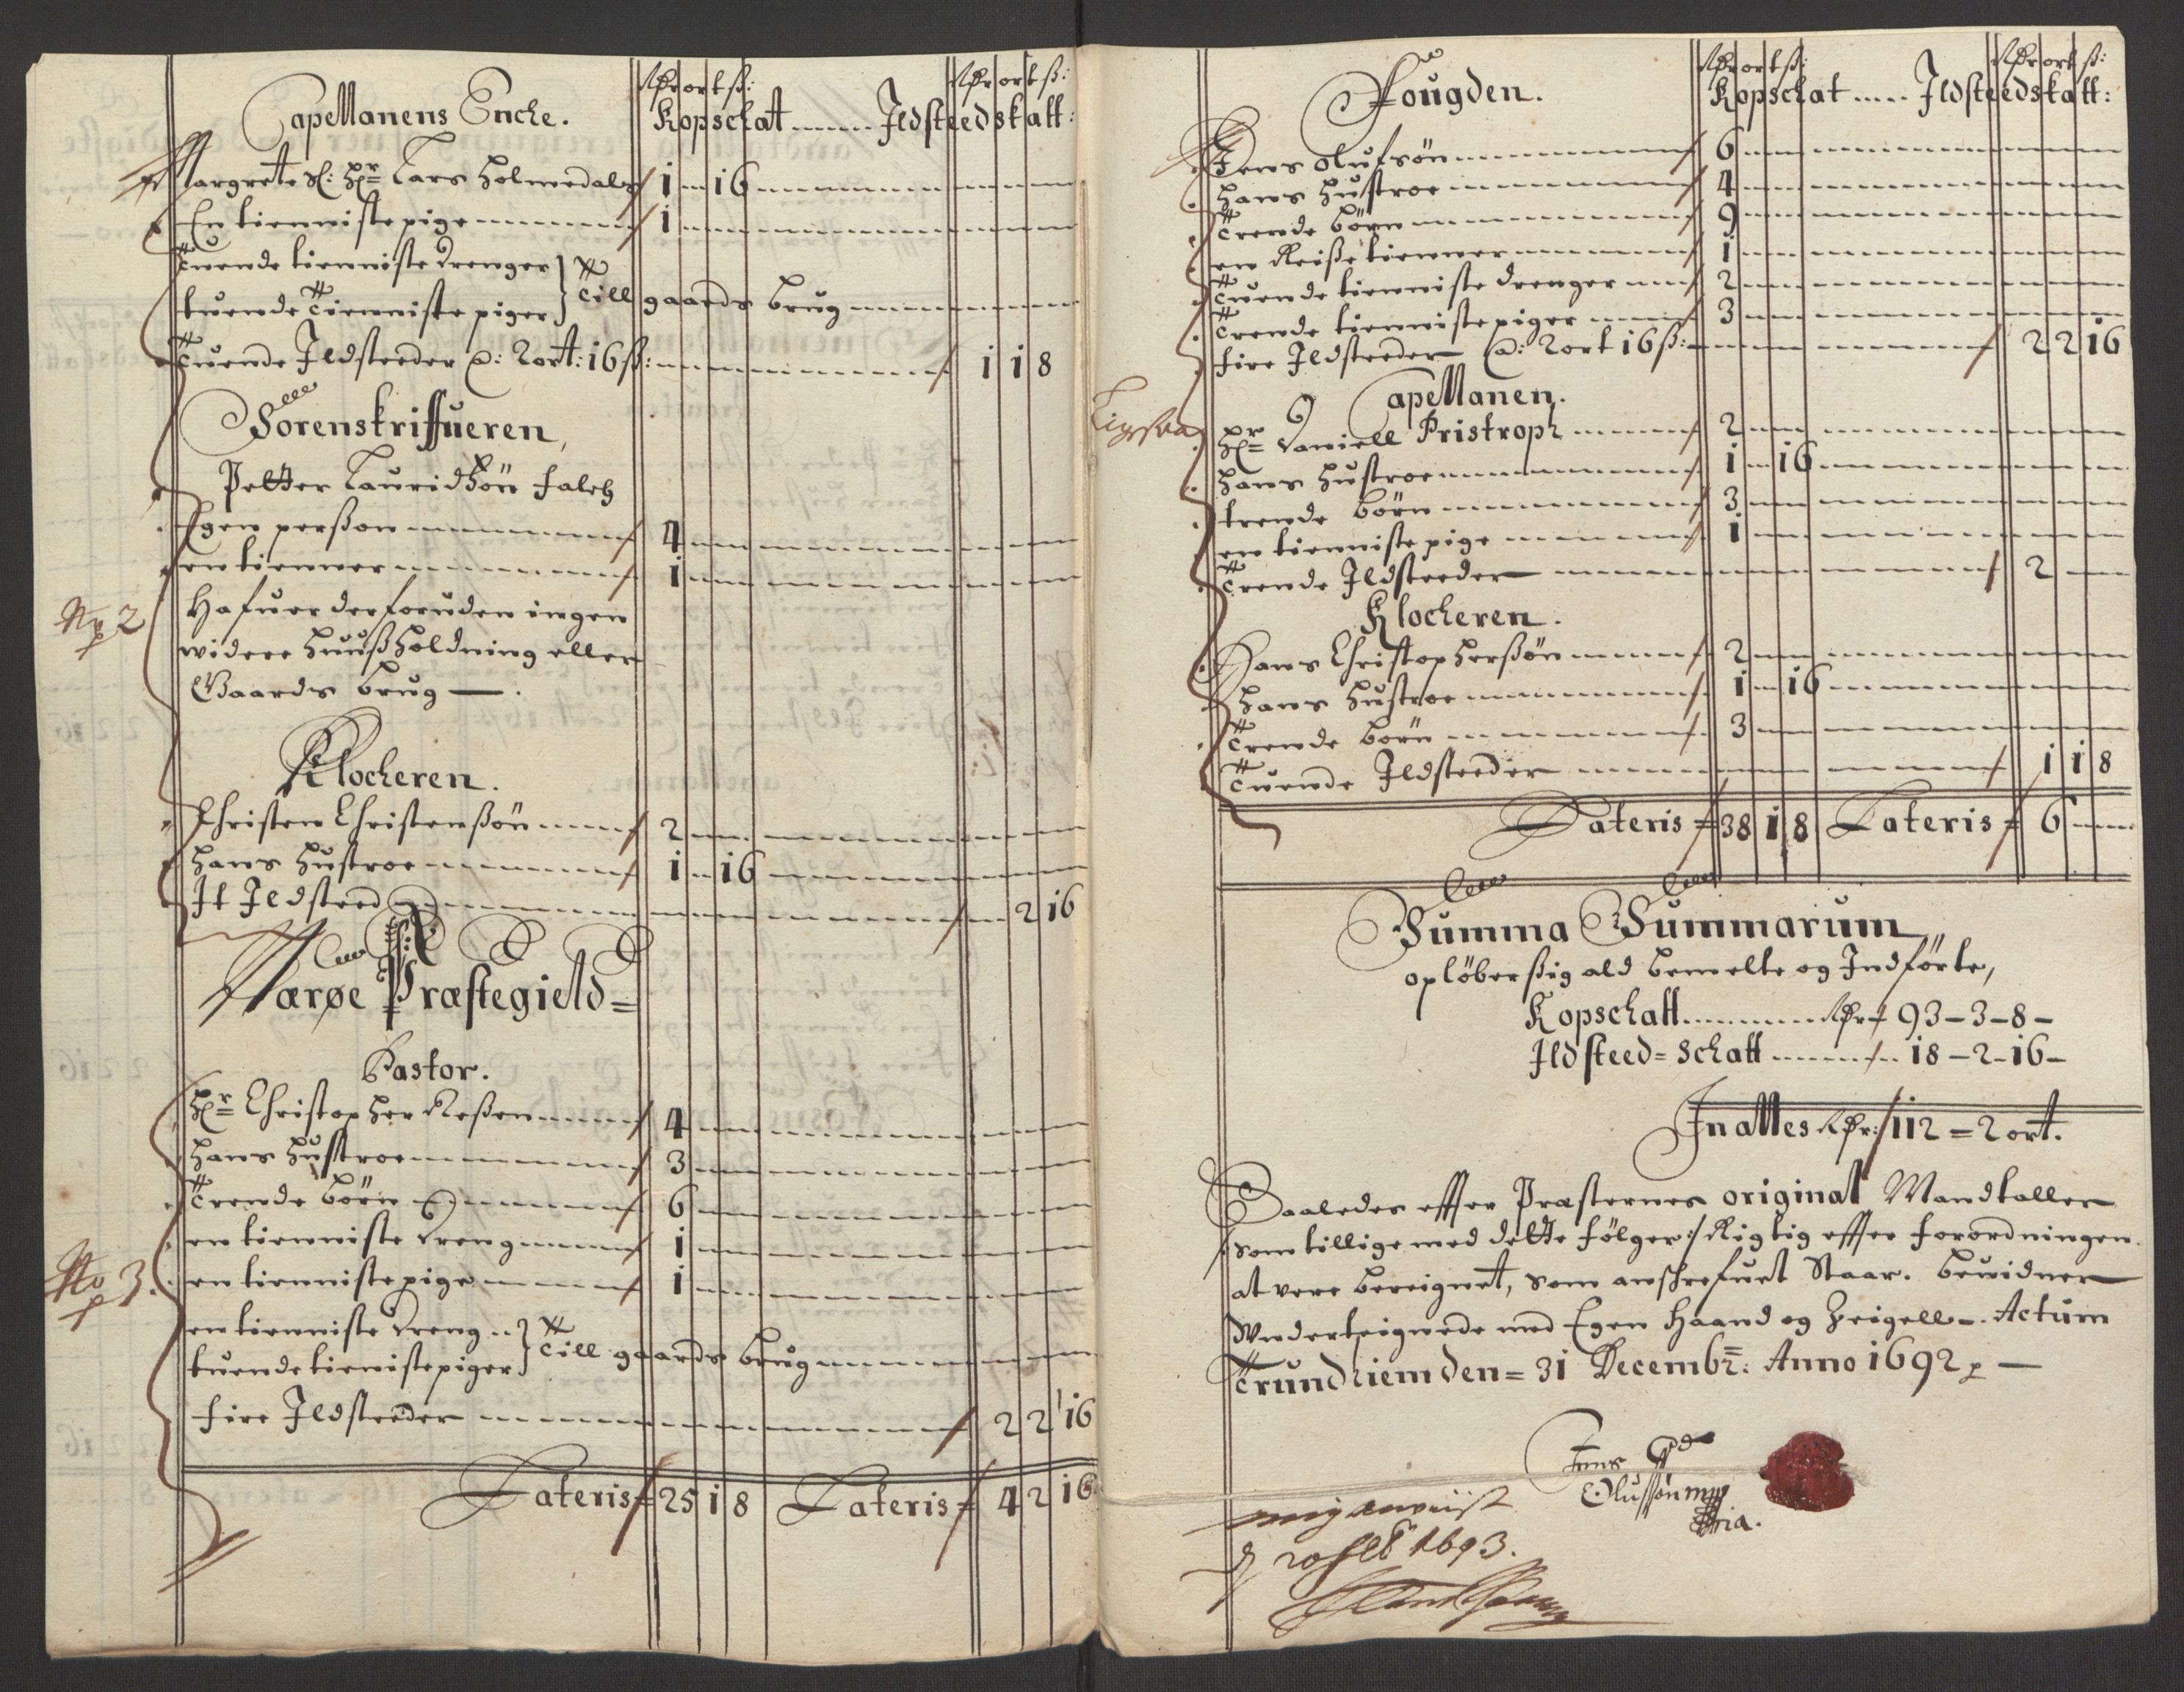 Rdr ort ß: Rdr ort ß:
Capellanens Encke. Kopschatt ...... Ildsteedskatt:
Margrete Sl: Hr Lars Holmedals 1 16
En tienniste pige 1
Tvende tienniste drenger
tvende Tienniste piger } Till gaards brug
Tvende Ildsteeder a: 2 ort: 16 ß: 1 1 8
Sorenskriffueren,
Petter Lauridsøn Falch
Egen perßon 4
en tienner 1
No 2
Hafuer der foruden ingen
widere huußholdning eller
Gaards brug
Klockeren.
Christen Christenßøn 2
hans hustroe 1 16
It Ildsteed 2 16
Nærøe Præstegield
Pastor.
Hr Christopher 4
hans hustroe 3
Trende børn 6
en tienniste dreng 1
No 3.
en tienniste pige 1
en tienniste dreng
tvende tieniste piger } Till gaards brug
fire Ildsteeder 2 2 16
Lateris 25 1 8 Lateris 4 2 16
Rdr ort ß: Rdr ort ß:
Fougden. Kopschat ..... Ildsteedskatt:
Jens Olufsøn 6
hans hustroe 4
Trende børn 9
en Reiße tienner 1
Tvende tienniste drenger 2
Trende tienniste piger 3
fire Ildsteeder a: 2 ort 16 ß: 2 2 16
Capellanen.
Hr Daniell Pristroph 2
hans hustroe 1 16
trende børn 3
en tienniste pige 1
Trende Ildsteeder 2
Klockeren.
Hans Christopherßøn 2
hans hustroe 1 16
Trende børn 3
Tvende Ildsteeder 1 1 8
Lateris 38 1 8 Lateris 6
Summa Summarum
opløber sig ald bemelte og Indførte,
Kopschatt .......... Rdr 93-3-8-
Ildsteed=Schatt ......... 18-2-16-
In alles Rdr: 112 = 2 ort.
Saaledes effter Præsternes original Mandtaller
/:som tillige med dette følger:/ Rigtig effter forordningen
at vere bereignet, som anschrefuet Staar. bevidner
Underteignede med Egen Haand og Zeigell. Actum
Trundhiem den = 31 Decembr: Anno 1692
Jens
Olufsøn mp
pria.
d 20 feb 1693.